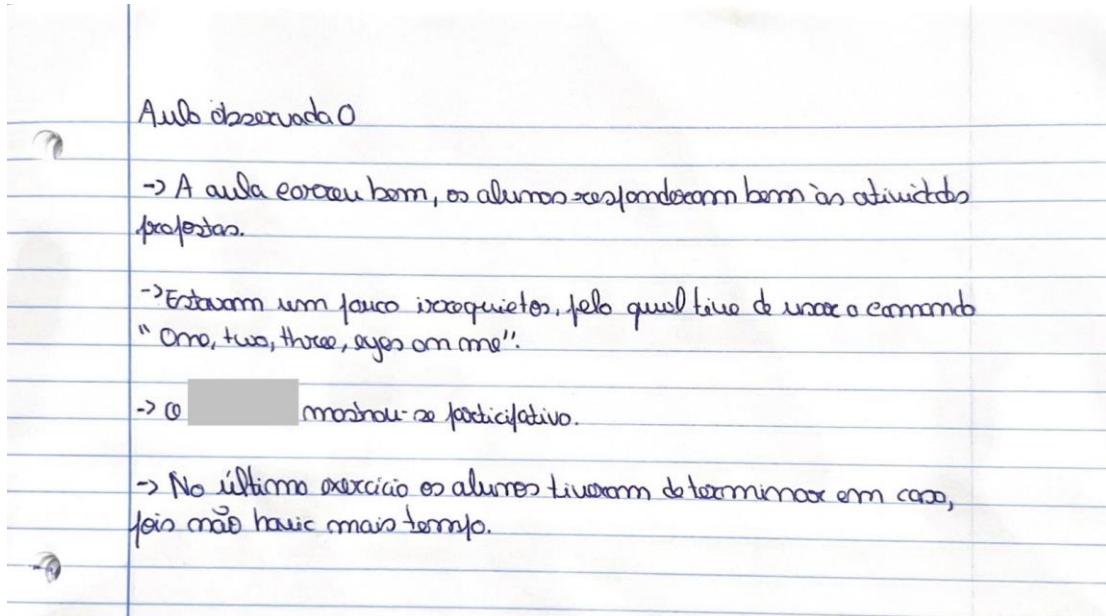 Aula observada 0
-> A aula correu bem, os alunos responderam bem às atividades
propostas.
-> Estavam um pouco irrequietos, pelo qual tive de usar o comando
"One, two, three, eyes on me".
-> O mostrou-se participativo.
-> No último exercício os alunos tiveram de terminar em casa,
pois não havia mais tempo.